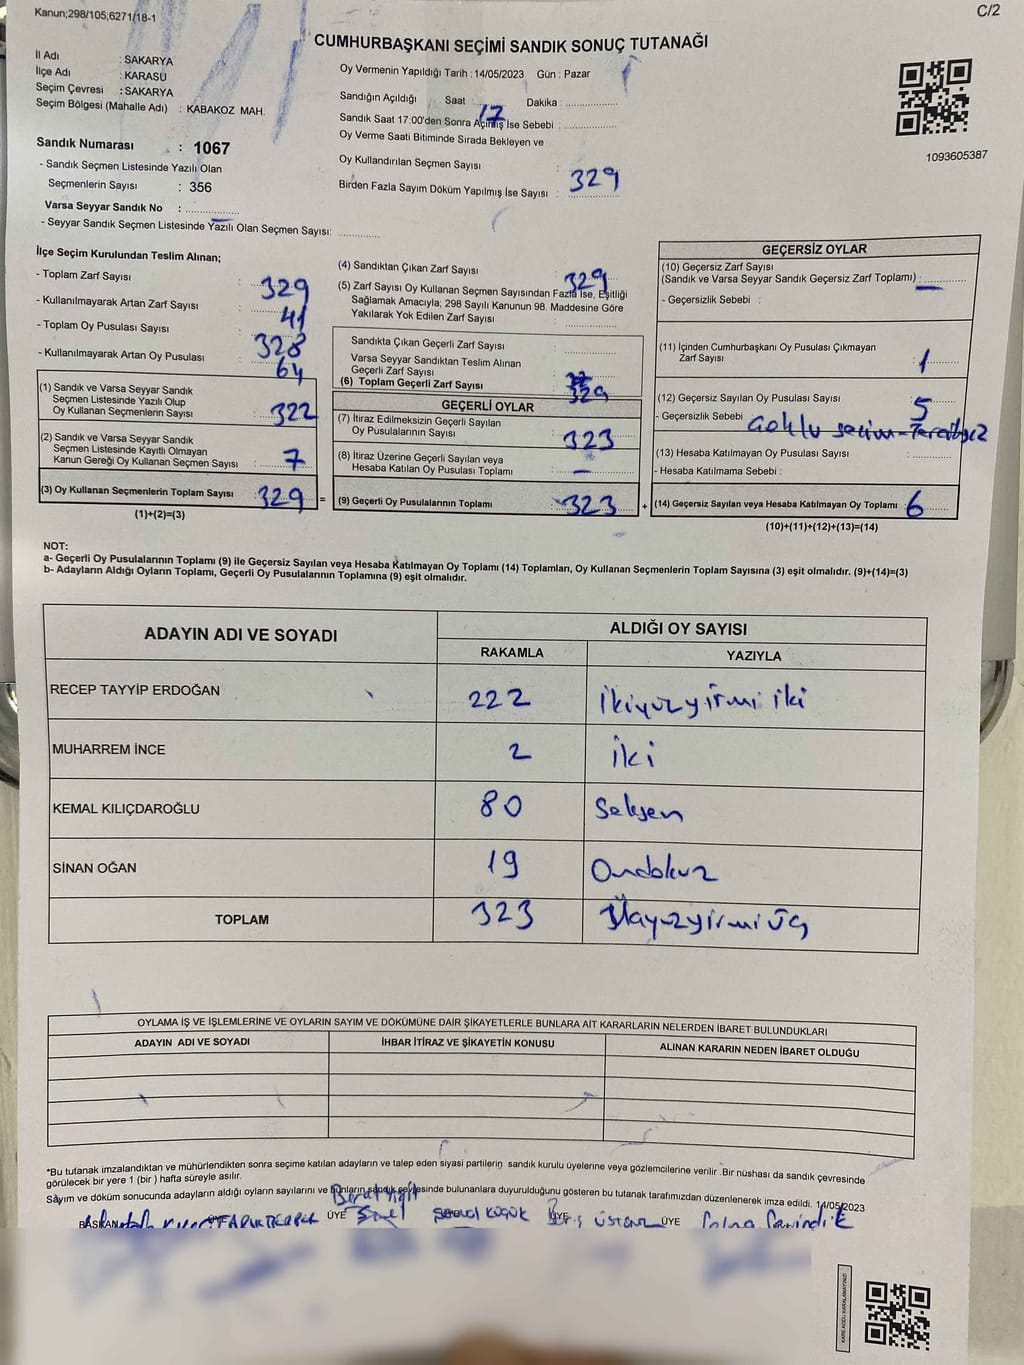 Kanun;298/105;6271/18-1
C/2
CUMHURBAŞKANI SEÇİMİ SANDIK SONUÇ TUTANAĞI
İl Adı : SAKARYA
İlçe Adı : KARASU
Seçim Çevresi : SAKARYA
Seçim Bölgesi (Mahalle Adı) : KABAKOZ MAH.
Sandık Numarası : 1067
- Sandık Seçmen Listesinde Yazılı Olan
Seçmenlerin Sayısı : 356
Varsa Seyyar Sandık No :
- Seyyar Sandık Seçmen Listesinde Yazılı Olan Seçmen Sayısı:
Oy Vermenin Yapıldığı Tarih : 14/05/2023 Gün : Pazar
Sandığın Açıldığı Saat : 17 Dakika :
Sandık Saat 17:00'den Sonra Açılmış İse Sebebi :
Oy Verme Saati Bitiminde Sırada Bekleyen ve
Oy Kullandırılan Seçmen Sayısı :
Birden Fazla Sayım Döküm Yapılmış İse Sayısı : 329
1093605387
İlçe Seçim Kurulundan Teslim Alınan;
- Toplam Zarf Sayısı : 329
- Kullanılmayarak Artan Zarf Sayısı : 41
- Toplam Oy Pusulası Sayısı : 328
- Kullanılmayarak Artan Oy Pusulası : 64
(1) Sandık ve Varsa Seyyar Sandık
Seçmen Listesinde Yazılı Olup
Oy Kullanan Seçmenlerin Sayısı : 322
(2) Sandık ve Varsa Seyyar Sandık
Seçmen Listesinde Kayıtlı Olmayan
Kanun Gereği Oy Kullanan Seçmen Sayısı : 7
(3) Oy Kullanan Seçmenlerin Toplam Sayısı : 329 =
(1)+(2)=(3)
(4) Sandıktan Çıkan Zarf Sayısı : 329
(5) Zarf Sayısı Oy Kullanan Seçmen Sayısından Fazla İse, Eşitliği
Sağlamak Amacıyla; 298 Sayılı Kanunun 98. Maddesine Göre
Yakılarak Yok Edilen Zarf Sayısı :
Sandıkta Çıkan Geçerli Zarf Sayısı :
Varsa Seyyar Sandıktan Teslim Alınan
Geçerli Zarf Sayısı :
(6) Toplam Geçerli Zarf Sayısı : 329
GEÇERLİ OYLAR
(7) İtiraz Edilmeksizin Geçerli Sayılan
Oy Pusulalarının Sayısı : 323
(8) İtiraz Üzerine Geçerli Sayılan veya
Hesaba Katılan Oy Pusulası Toplamı : –
(9) Geçerli Oy Pusulalarının Toplamı : 323 +
GEÇERSİZ OYLAR
(10) Geçersiz Zarf Sayısı
(Sandık ve Varsa Seyyar Sandık Geçersiz Zarf Toplamı) : –
- Geçersizlik Sebebi :
(11) İçinden Cumhurbaşkanı Oy Pusulası Çıkmayan
Zarf Sayısı : 1
(12) Geçersiz Sayılan Oy Pusulası Sayısı : 5
- Geçersizlik Sebebi
(13) Hesaba Katılmayan Oy Pusulası Sayısı :
- Hesaba Katılmama Sebebi :
(14) Geçersiz Sayılan veya Hesaba Katılmayan Oy Toplamı : 6
(10)+(11)+(12)+(13)=(14)
NOT:
a- Geçerli Oy Pusulalarının Toplamı (9) ile Geçersiz Sayılan veya Hesaba Katılmayan Oy Toplamı (14) Toplamları, Oy Kullanan Seçmenlerin Toplam Sayısına (3) eşit olmalıdır. (9)+(14)=(3)
b- Adayların Aldığı Oyların Toplamı, Geçerli Oy Pusulalarının Toplamına (9) eşit olmalıdır.
ADAYIN ADI VE SOYADI ALDIĞI OY SAYISI
RAKAMLA YAZIYLA
RECEP TAYYİP ERDOĞAN 222 ikiyüzyirmi iki
MUHARREM İNCE 2 iki
KEMAL KILIÇDAROĞLU 80 Seksen
SİNAN OĞAN 19 Ondokuz
TOPLAM 323
OYLAMA İŞ VE İŞLEMLERİNE VE OYLARIN SAYIM VE DÖKÜMÜNE DAİR ŞİKAYETLERLE BUNLARA AİT KARARLARIN NELERDEN İBARET BULUNDUKLARI
ADAYIN ADI VE SOYADI İHBAR İTİRAZ VE ŞİKAYETİN KONUSU ALINAN KARARIN NEDEN İBARET OLDUĞU
*Bu tutanak imzalandıktan ve mühürlendikten sonra seçime katılan adayların ve talep eden siyasi partilerin sandık kurulu üyelerine veya gözlemcilerine verilir .Bir nüshası da sandık çevresinde
görülecek bir yere 1 (bir ) hafta süreyle asılır.
Sayım ve döküm sonucunda adayların aldığı oyların sayılarını ve bunların sandık çevresinde bulunanlara duyurulduğunu gösteren bu tutanak tarafımızdan düzenlenerek imza edildi. 14/05/2023
BAŞKAN ÜYE ÜYE KÜÇÜK ÜYE ÜYE